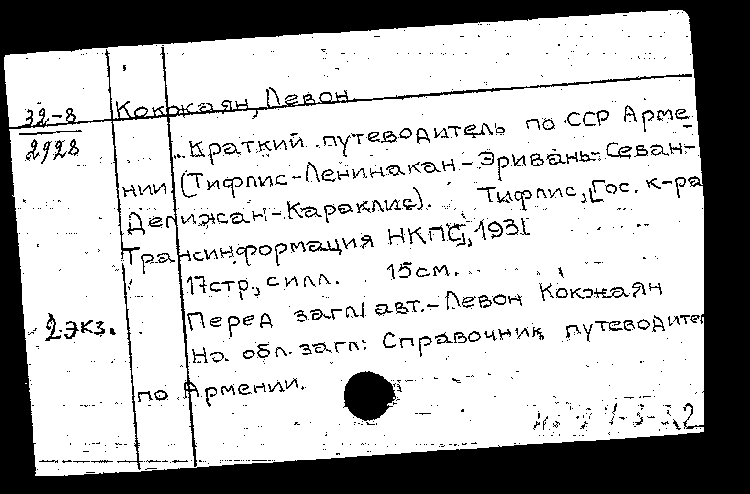 32-8
2928
Кокжаян, Левон
Краткий путеводитель по ССР Арме-
нии (Тифлис-Ленинакан-Эривань-Севан-
Делижан-Караклис). Тифлис, Гос. к-ра
Трансинформация НКПС, 1931
17стр., с илл. 15см.
Перед загл. авт.-Левон Кокжаян
2 экз.
На обл. загл: Справочник путеводител
по Армении.